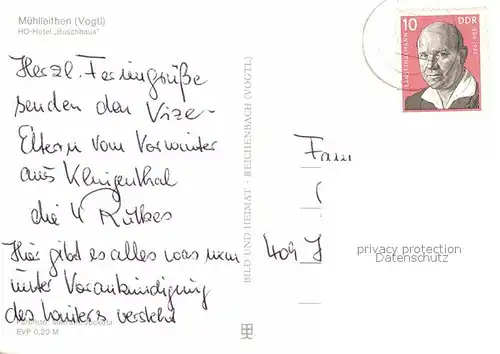 Mühlleithen (Vogtl)
HO-Hotel „Buschhaus"
Herzl. Feriengrüße
senden den Vize-
Eltern vom Vorwinter
aus Klingenthal
die 4
Hier gibt es alles was man
unter Vorankündigung
des Winters versteht
EVP 0,20 M
BILD UND HEIMAT · REICHENBACH (VOGTL)
10
DDR
Fam
409
privacy protection
Datenschutz